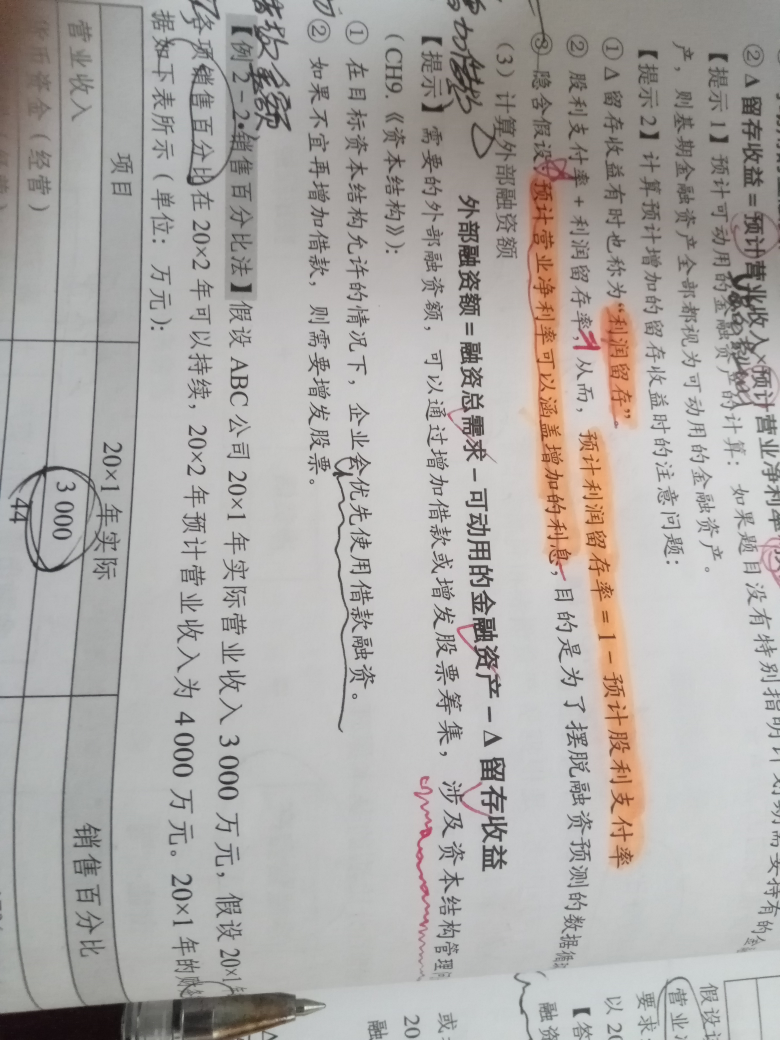 ② Δ留存收益=预计营业收入×预计营业净利率
【提示1】预计可动用的金融资产的计算：如果题目没有特别指明计划期需要持有的金
产，则基期金融资产全部都视为可动用的金融资产。
【提示2】计算预计增加的留存收益时的注意问题：
① Δ留存收益有时也称为“利润留存”
② 股利支付率+利润留存率=1，从而，预计利润留存率=1-预计股利支付率
③ 隐含假设：预计营业净利率可以涵盖增加的利息，目的是为了摆脱融资预测的数据循
（3）计算外部融资额
外部融资额=融资总需求-可动用的金融资产-Δ留存收益
【提示】需要的外部融资额，可以通过增加借款或增发股票筹集，涉及资本结构管理
（CH9.《资本结构》）：
① 在目标资本结构允许的情况下，企业会优先使用借款融资。
② 如果不宜再增加借款，则需要增发股票。
【例2-2·销售百分比法】假设ABC公司20×1年实际营业收入3 000万元，假设20×1年
各项销售百分比在20×2年可以持续，20×2年预计营业收入为4 000万元。20×1年的
据如下表所示（单位：万元）：
项目 20×1年实际 销售百分比
营业收入 3 000
货币资金（经营） 44
假设
营业
要求
以20
【答
融资
或
20
融